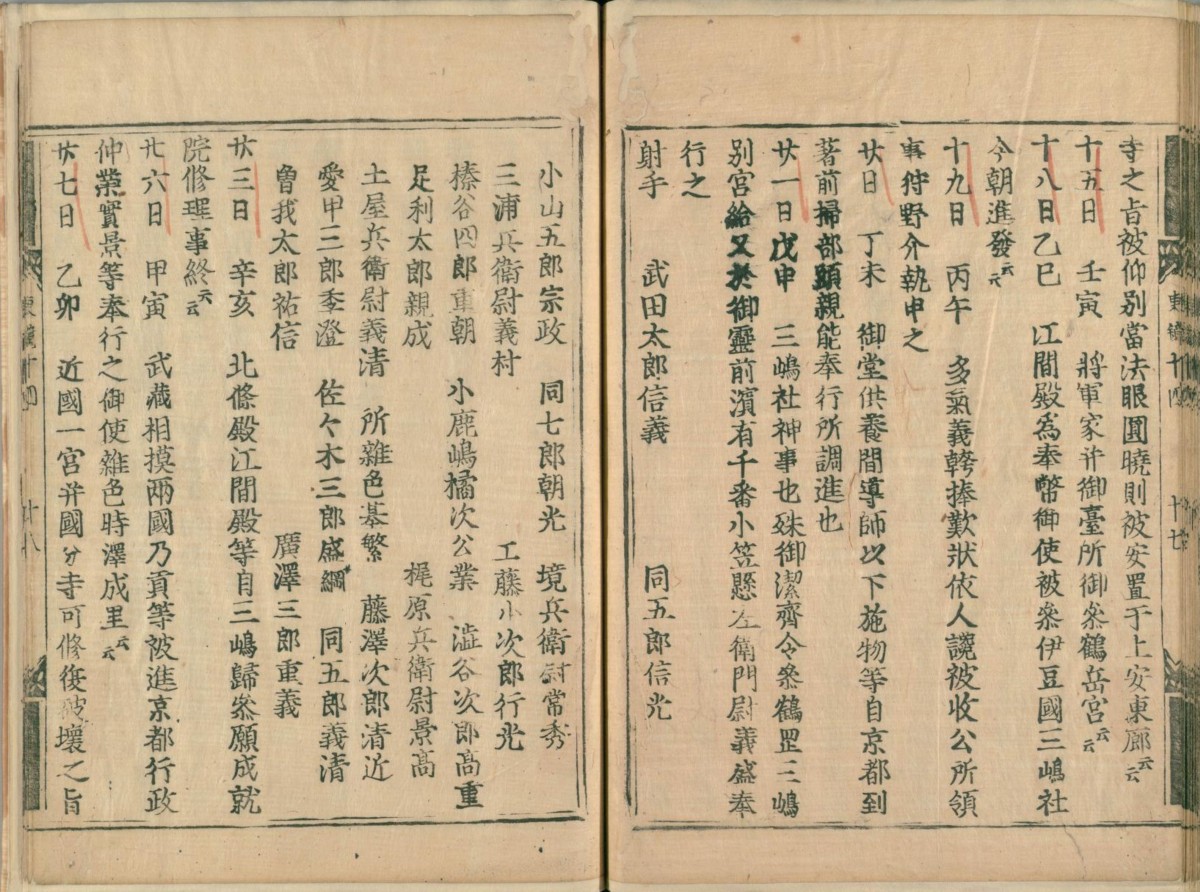 寺之旨被仰別當法眼圓曉則被安置于上安東廊云云
十五日 壬寅 將軍家并御臺所御參鶴岳宮云云
十八日乙巳 江間殿為奉幣御使被參伊豆國三嶋社
今朝進發云云
十九日 丙午 多氣義幹捧歎狀依人讒被收公所領
事狩野介執申之
廿日 丁未 御堂供養間導師以下施物等自京都到
著前掃部頭親能奉行所調進也
廿一日戊申 三嶋社神事也殊御潔齊令參鶴罡三嶋
別宮給又於御靈前濱有千番小笠懸左衛門尉義盛奉
行之
射手 武田太郎信義 同五郎信光
小山五郎宗政 同七郎朝光 境兵衛尉常秀
三浦兵衛尉義村 工藤小次郎行光
榛谷四郎重朝 小鹿嶋橘次公業 澁谷次郎高重
足利太郎親成 梶原兵衛尉景高
土屋兵衛尉義清 所雜色基繁 藤澤次郎清近
愛甲三郎季澄 佐々木三郎盛綱 同五郎義清
曽我太郎祐信 廣澤三郎重義
廿三日 辛亥 北條殿江間殿等自三嶋歸參願成就
院修理事終云云
廿六日 甲寅 武藏相摸兩國乃貢等被進京都行政
仲業實景等奉行之御使雜色時澤成里云云
廿七日 乙卯 近國一宮并國分寺可修復破壞之旨
東鑑十四 十七
東鑑十四 十八